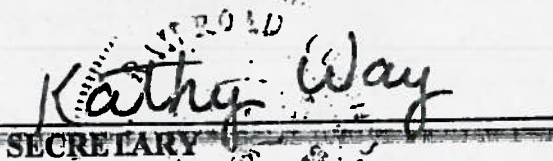 Kathy Way
SECRETARY